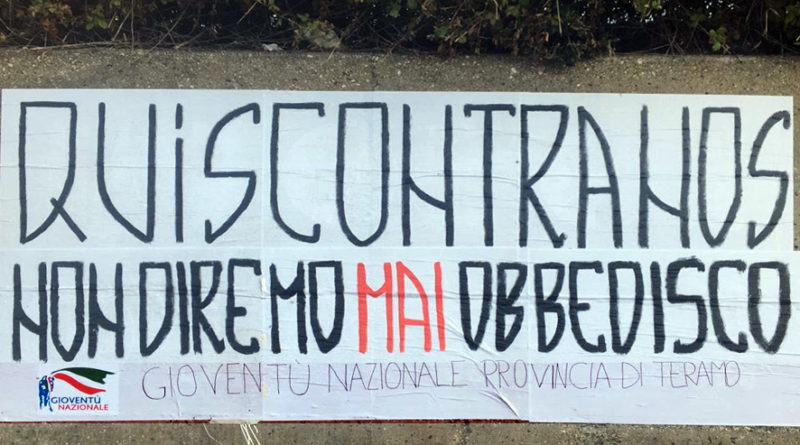 QUIS CONTRA NOS
NON DIREMO MAI OBBEDISCO
GIOVENTÙ
NAZIONALE
GIOVENTÙ NAZIONALE PROVINCIA DI TERAMO